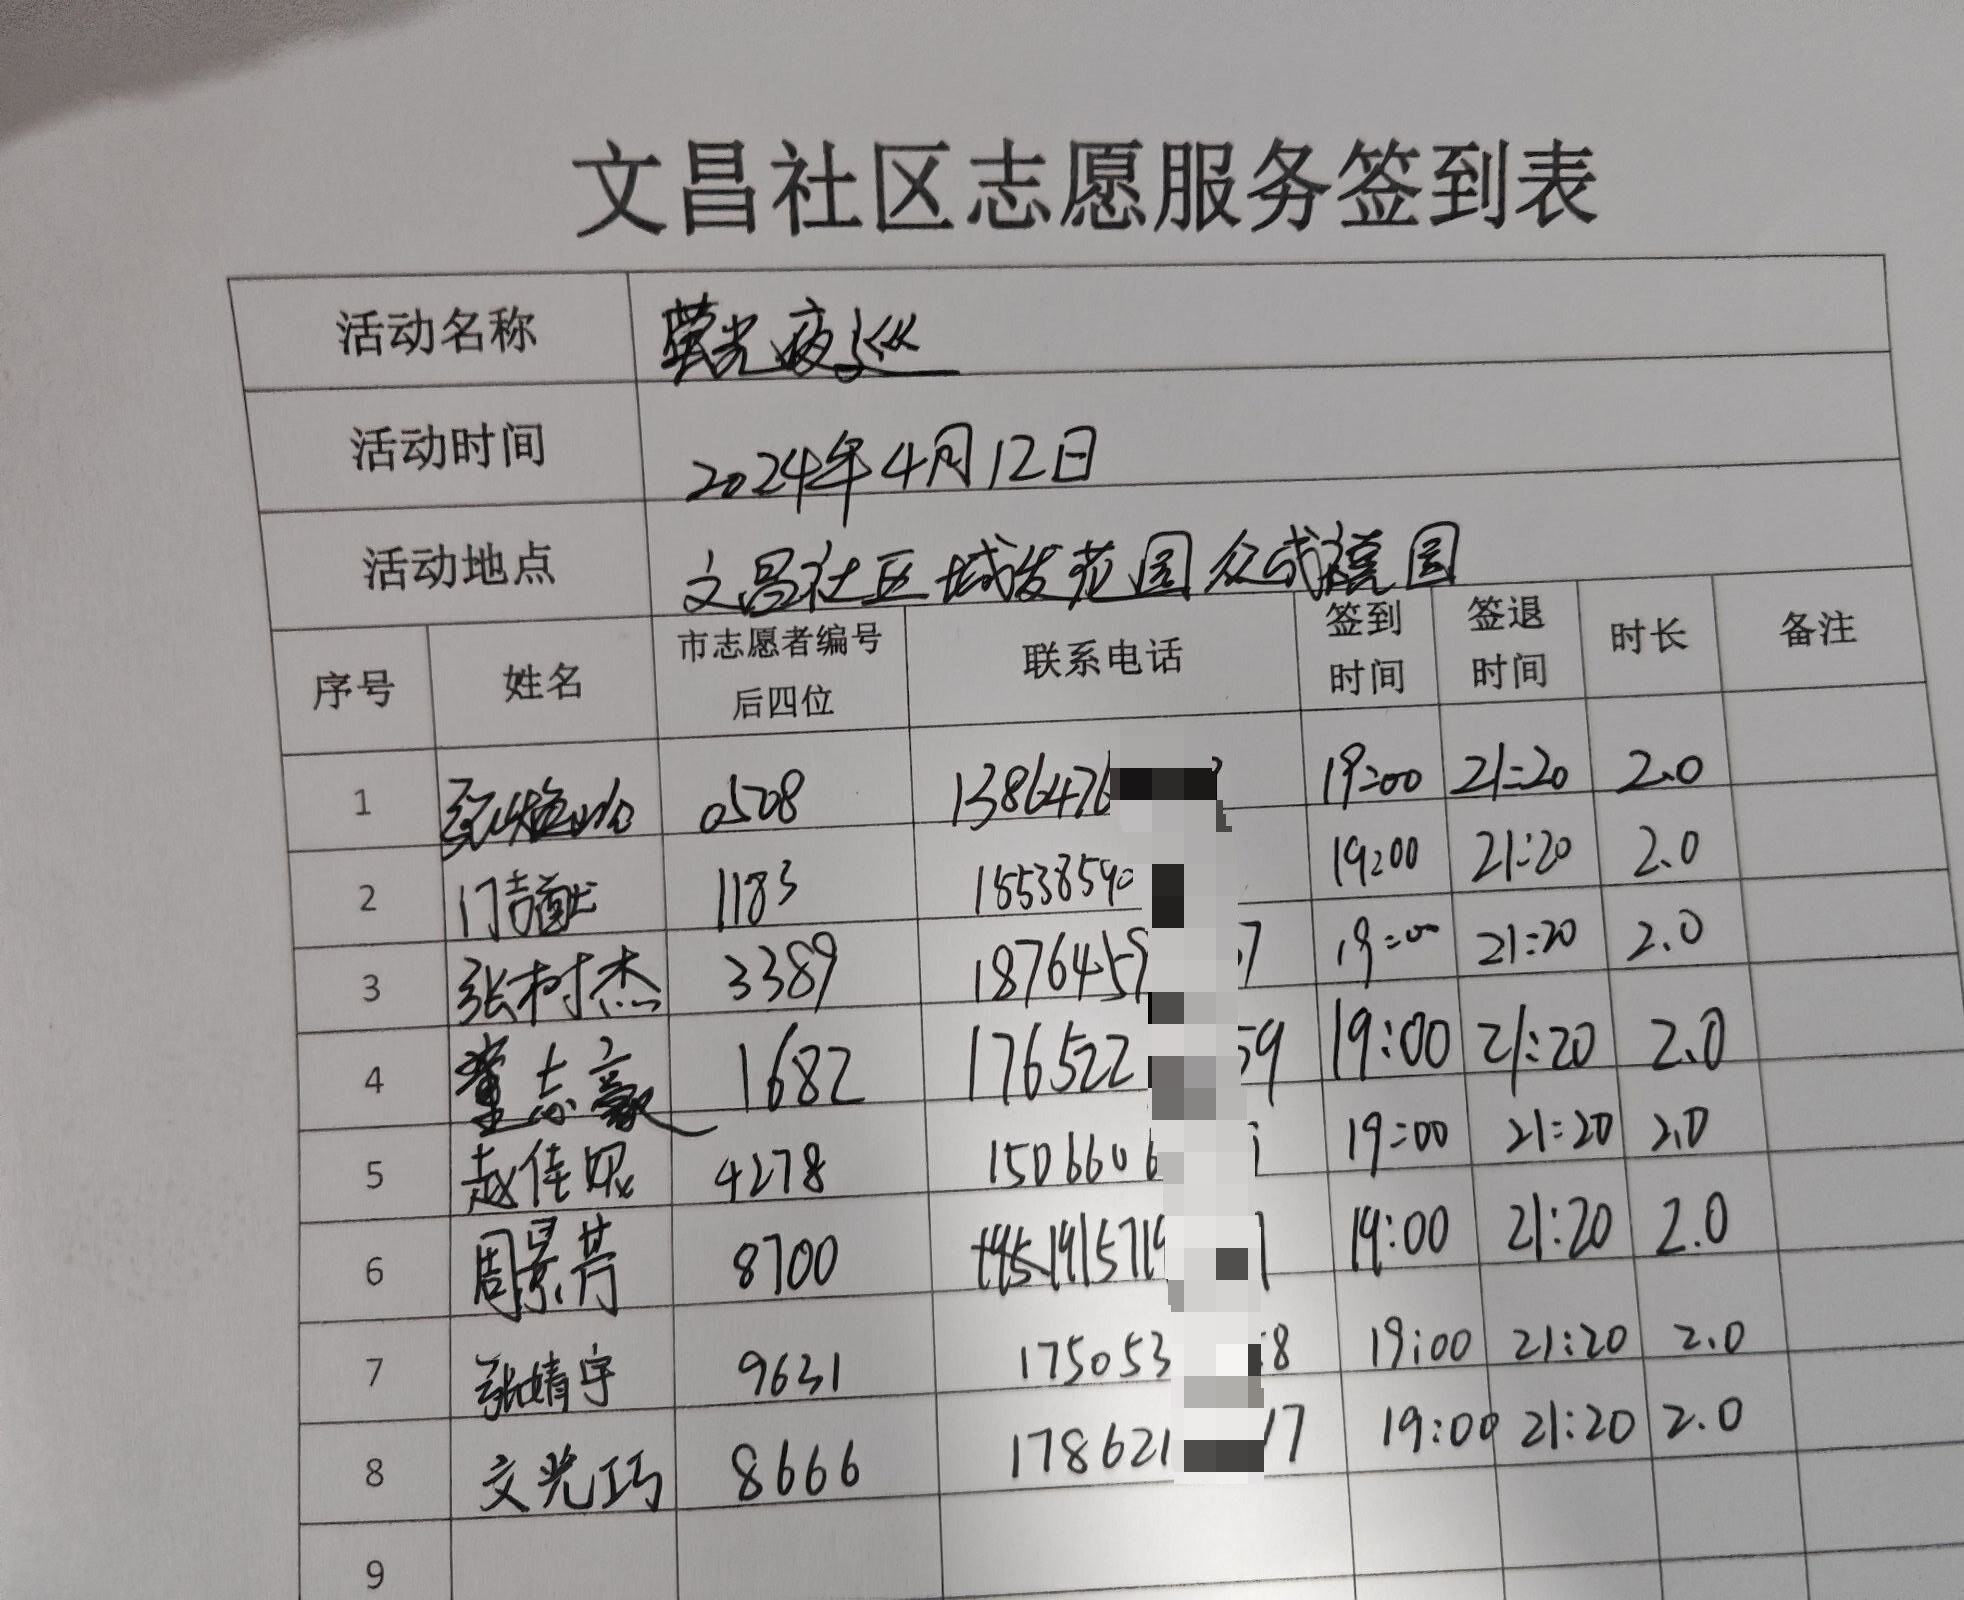 文昌社区志愿服务签到表
活动名称 萤光夜巡
活动时间 2024年4月12日
活动地点 文昌社区城发范园众成禧园
序号 姓名 市志愿者编号后四位 联系电话 签到时间 签退时间 时长 备注
1 0508 1386476 19:00 21:20 2.0
2 1183 18538590 19:00 21:20 2.0
3 张树杰 3389 1876459 7 19:00 21:20 2.0
4 董志豪 1682 176522 59 19:00 21:20 2.0
5 赵佳 4278 1506606 19:00 21:20 2.0
6 周景芳 8700 1915719 1 19:00 21:20 2.0
7 张婧宇 9631 175053 8 19:00 21:20 2.0
8 文光巧 8666 178621 17 19:00 21:20 2.0
9